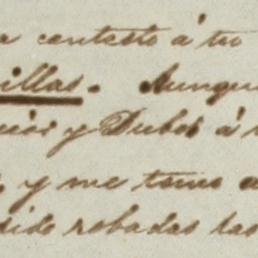 a contesto á tu
illas. Aunque
cios y Dubos á
y me tomo a
sido robadas las